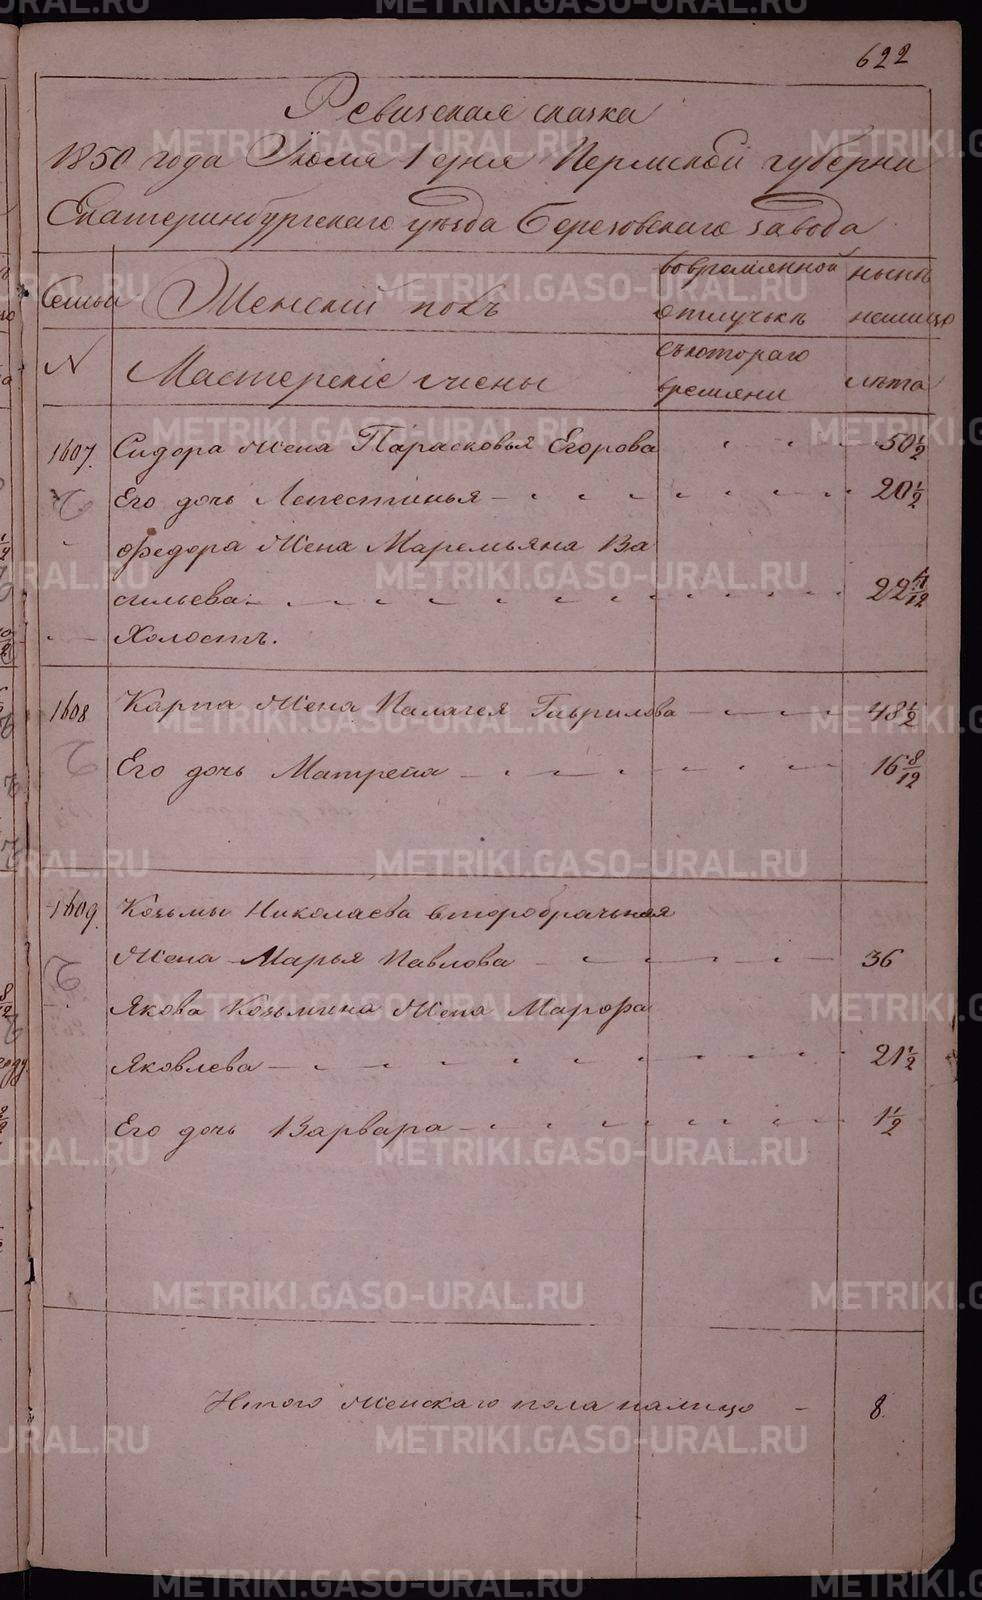 622
Ревизская сказка
1850 года Июля 1 дня Пермской губерни
Екатеринбургскаго уезда Березовскаго завода
Семьи Женскій полъ во времянной ныне
отлучьке налицо
N Мастерскіе жены съ котораго времяни лета
1607. Сидора жена Парасковья Егорова 50 1/2
Его дочь 20 1/2
Федора жена Маремьяна Ва
сильева 22
Холостъ.
1608 Карпа жена Палагея Гаврилова 48 1/2
Его дочь Матрена 16 8/12
1609. Козьмы Николаева второбрачьная
жена Марья Павлова 36
Якова Козьмина жена Марфа
Яковлева 21 1/2
Его дочь Варвара 1 1/2
Итого женскаго пола налицо 8.
METRIKI.GASO-URAL.RU